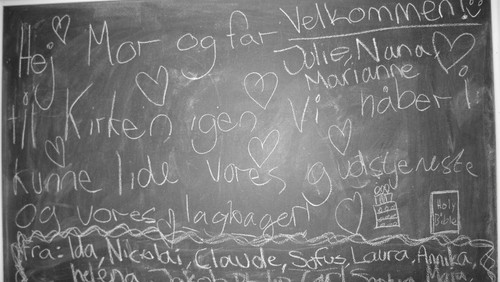 Velkommen!
Hej Mor og far
Julie, Nana
Marianne
til Kirken igen Vi håber i
kunne lide vores gudstjeneste
og vores flagkager!
Holy
Bible
Fra: Ida, Nicolai, Claude, Sofus, Laura, Annika,
helena